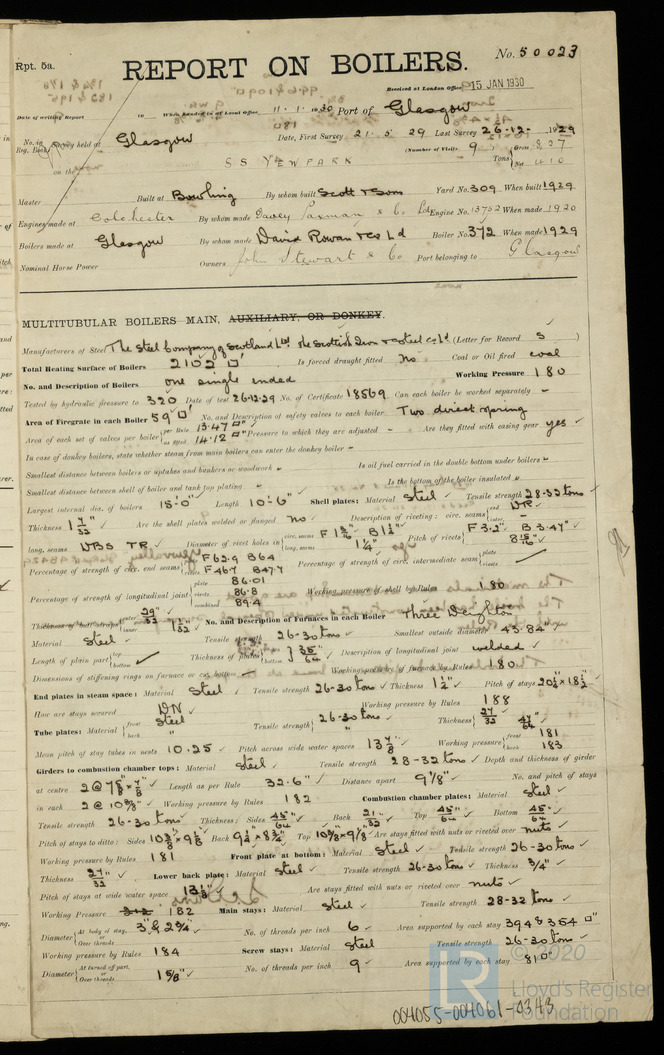 Rpt. 5a.
No. 50023
REPORT ON BOILERS.
Received at London Office 15 JAN 1930
Date of writing Report 19 When handed in at Local Office 11.1.1930 Port of Glasgow
No. in Reg. Book Survey held at Glasgow Date, First Survey 21.5.29 Last Survey 26.12.1929
(Number of Visits 9) Gross 827
on the SS YEWPARK Tons Net 410
Master Built at Bowling By whom built Scott & Sons Yard No. 309 When built 1929
Engines made at Colchester By whom made Davey Paxman & Co. Ltd Engine No. 13752 When made 1920
Boilers made at Glasgow By whom made David Rowan & Co Ld Boiler No. 372 When made 1929
Nominal Horse Power Owners John Stewart & Co Port belonging to Glasgow
MULTITUBULAR BOILERS MAIN, AUXILIARY, OR DONKEY.
Manufacturers of Steel The Steel Company of Scotland Ltd The Scottish Iron & Steel Co Ld (Letter for Record S)
Total Heating Surface of Boilers 2102 □' Is forced draught fitted No Coal or Oil fired coal
No. and Description of Boilers one single ended Working Pressure 180
Tested by hydraulic pressure to 320 Date of test 26.12.29 No. of Certificate 18569 Can each boiler be worked separately -
Area of Firegrate in each Boiler 59 □' No. and Description of safety valves to each boiler Two direct spring
Area of each set of valves per boiler per Rule 13.47 □" as fitted 14.12 □" Pressure to which they are adjusted - Are they fitted with easing gear yes
In case of donkey boilers, state whether steam from main boilers can enter the donkey boiler -
Smallest distance between boilers or uptakes and bunkers or woodwork - Is oil fuel carried in the double bottom under boilers -
Smallest distance between shell of boiler and tank top plating - Is the bottom of the boiler insulated -
Largest internal dia. of boilers 15'-0" Length 10'-6" Shell plates: Material Steel Tensile strength 28-32 tons
Thickness 1 7/32" Are the shell plates welded or flanged No Description of riveting: circ. seams end DR
long. seams DBS TR Diameter of rivet holes in circ. seams F 1 5/16" B 1 1/4" long. seams 1 1/4" Pitch of rivets F 3.2" B 3.47" 8 5/16"
Percentage of strength of circ. end seams plate F 62.9 B 64 rivets F 46.7 B 47.7 Percentage of strength of circ. intermediate seam plate rivets
Percentage of strength of longitudinal joint plate 86.01 rivets 86.8 combined 89.4 Working pressure of shell by Rules 180
Thickness of butt straps outer 29/32" inner 1 1/32" No. and Description of Furnaces in each Boiler Three Deighton
Material Steel Tensile strength 26-30 tons Smallest outside diameter 43.84"
Length of plain part top bottom Thickness of plates bottom 35/64" Description of longitudinal joint welded
Dimensions of stiffening rings on furnace or c.c. bottom Working pressure of furnace by Rules 180
End plates in steam space: Material Steel Tensile strength 26-30 tons Thickness 1 1/2" Pitch of stays 20 1/2" x 18 1/2"
How are stays secured DN Working pressure by Rules 188
Tube plates: Material front Steel back " Tensile strength 26-30 tons " Thickness 27/32 47/64"
Mean pitch of stay tubes in nests 10.25 Pitch across wide water spaces 13 7/8" Working pressure front 181 back 183
Girders to combustion chamber tops: Material Steel Tensile strength 28-32 tons Depth and thickness of girder
at centre 2 @ 7 5/8" x 7/8" Length as per Rule 32.6" Distance apart 9 7/8" No. and pitch of stays
in each 2 @ 10 3/8" Working pressure by Rules 182 Combustion chamber plates: Material Steel
Tensile strength 26-30 tons Thickness: Sides 45/64" Back 21/32" Top 45/64" Bottom 45/64"
Pitch of stays to ditto: Sides 10 3/8 x 9 7/8 Back 9 1/2 x 8 3/4" Top 10 3/8 x 9 7/8 Are stays fitted with nuts or riveted over nuts
Working pressure by Rules 181 Front plate at bottom: Material Steel Tensile strength 26-30 tons
Thickness 27/32" Lower back plate: Material Steel Tensile strength 26-30 tons Thickness 3/4"
Pitch of stays at wide water space 13 1/8" Are stays fitted with nuts or riveted over nuts
Working Pressure 182 Main stays: Material Steel Tensile strength 28-32 tons
Diameter At body of stay, or Over threads 3" & 2 3/4" No. of threads per inch 6 Area supported by each stay 394 & 354 □"
Working pressure by Rules 184 Screw stays: Material Steel Tensile strength 26-30 tons
Diameter At turned off part, or Over threads 1 5/8" No. of threads per inch 9 Area supported by each stay 81 □"
© 2020
LR
Lloyd's Register
Foundation
004055-004061-0343